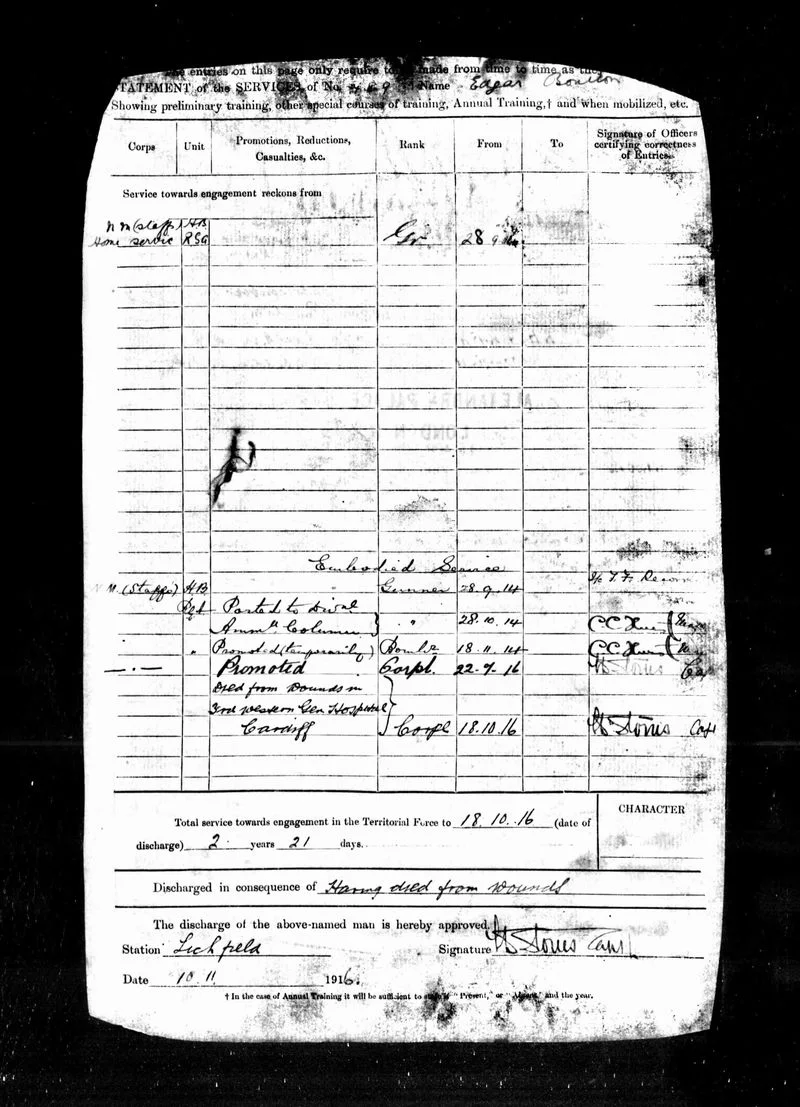 The entries on this page only require to be made from time to time as the
STATEMENT of the SERVICES of No. Name Edgar Boulton
Showing preliminary training, other special courses of training, Annual Training,† and when mobilized, etc.
Corps Unit Promotions, Reductions, Casualties, &c. Rank From To Signature of Officers certifying correctness of Entries.
Service towards engagement reckons from
N M (Staffs) H.B
Home Service RGA Gr 28 9 14
Embodied Service
N. M. (Staffs) H.B Gunner 28.9.14 T. F. Record
RGA Posted to Divnl
Ammn. Column } " 28.10.14 C.C.
" Promoted (temporarily) Bombr 18.11.14 C.C.
— . — Promoted Corpl. 22.7.16 Stones Cap
Died from Wounds in
3rd Western Gen Hospital
Cardiff } Corpl 18.10.16 Stones Capt
CHARACTER
Total service towards engagement in the Territorial Force to 18.10.16 (date of
discharge) 2 years 21 days.
Discharged in consequence of Having died from Wounds
The discharge of the above-named man is hereby approved.
Station Lichfield Signature Stones Capt
Date 10 11 1916.
† In the case of Annual Training it will be sufficient to state if "Present," or "Absent" and the year.